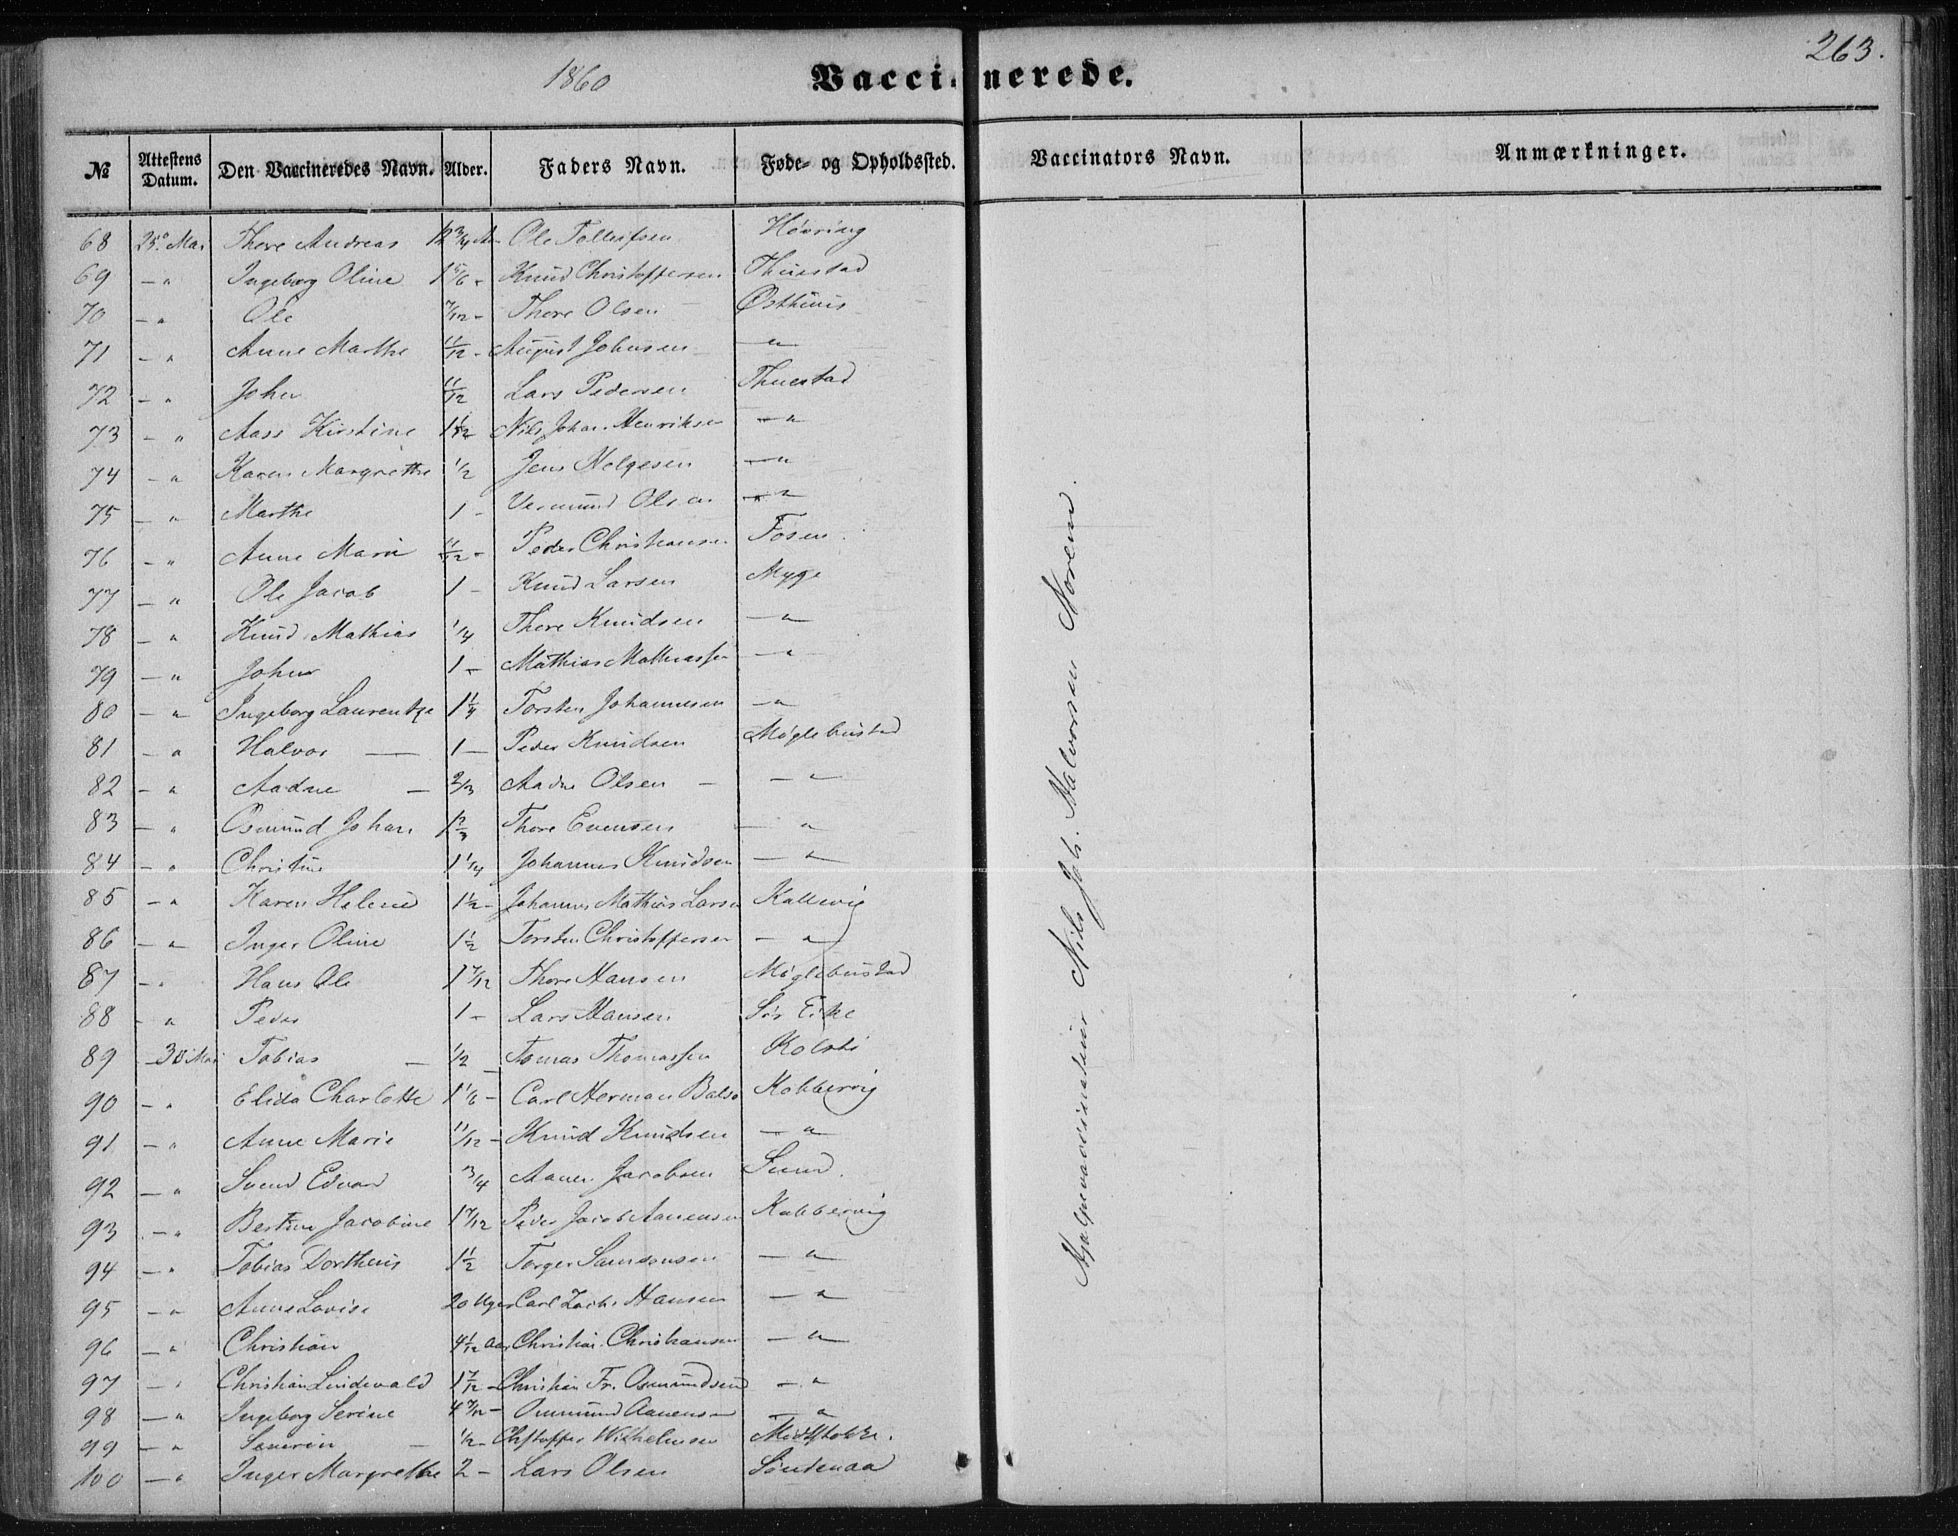 263.
1860
Vaccinerede.
№ Attestens Datum. Den Vaccineredes Navn. Alder. Faders Navn. Føde- og Opholdssted. Vaccinators Navn. Anmærkninger.
68 25. Mai Thore Andreas 12 3/4 Ole Tolleifsen Høvring
69 — " Ingeborg Oline 1 5/6 - Knud Christoffersen Thuestad
70 — " Ole 7/12 - Thore Olsen Østhuus
71 — " Anne Marthe 11/12 - August Johnsen — "
72 - " John 11/12 Lars Pedersen Thuestad
73 — " Aase Kirstine 1 1/12 Nils Johan Henriksen — "
74 — " Karen Margrethe 1/2 Jens Helgesen — "
75 — " Marthe 1 - Vermund Olsen — "
76 — " Anne Marie 11/12 - Peder Christiansen Fosen
77 — " Ole Jacob 1 - Knud Larsen Myge
78 — " Knud Mathias 1/4 Thore Knudsen — "
79 — " John 1 - Mathias Mathiassen — "
80 — " Ingeborg Laurentze 1 1/4 Torsten Johannesen — "
81 — " Halvor — 1 — Peder Knudsen Møglebustad
82 — " Aadne — 2/3 Aadne Olsen — — "
83 — " Osmund Johan 1 2/3 Thore Evensen — "
84 — " Christine 1 1/4 Johannes Knudsen — "
85 — " Karen Helene 1 1/2 - Johannes Mathias Larsen Kallevig
86 — " Inger Oline 1 1/2 Torsten Christoffersen — "
87 — " Hans Ole 1 7/12 Thore Hansen Møglebustad
88 - " Peder 1 - Lars Hansen Sør Eike
89 - 30 Mai Tobias — 1/2 Tomas Thomassen Kolstø
90 — " Elida Charlotte 1 1/6 - Carl Herman Kobbervig
91 — " Anne Marie 11/12 - Knud Knudsen — "
92 — " Svend Edvard 3/4 Aanen Jacobsen Sund.
93 — " Bertine Jacobine 1 7/12 Peder Jacob Aanensen Kobbervig
94 — " Tobias Dortheus 1 1/2 Torger Samsonsen — "
95 — " Anne Lovise 20 Uger Carl Hansen — "
96 — " Christian 4 1/12 Aar Christian Christiansen — "
97 — " Christian Lindevald 1 7/12 - Christian Fr. Osmundsen — "
98 — " Ingeborg Serine 4 7/12 - Omund Aanensen — "
99 — " Severin — 1/2 - Chstoffer Wilhelmsen Midtstokke.
100 — " Inger Margrethe 2 - Lars Olsen Søndenaa
Hjælpevaccinateur Nils Joh. Halvorsen Norem.